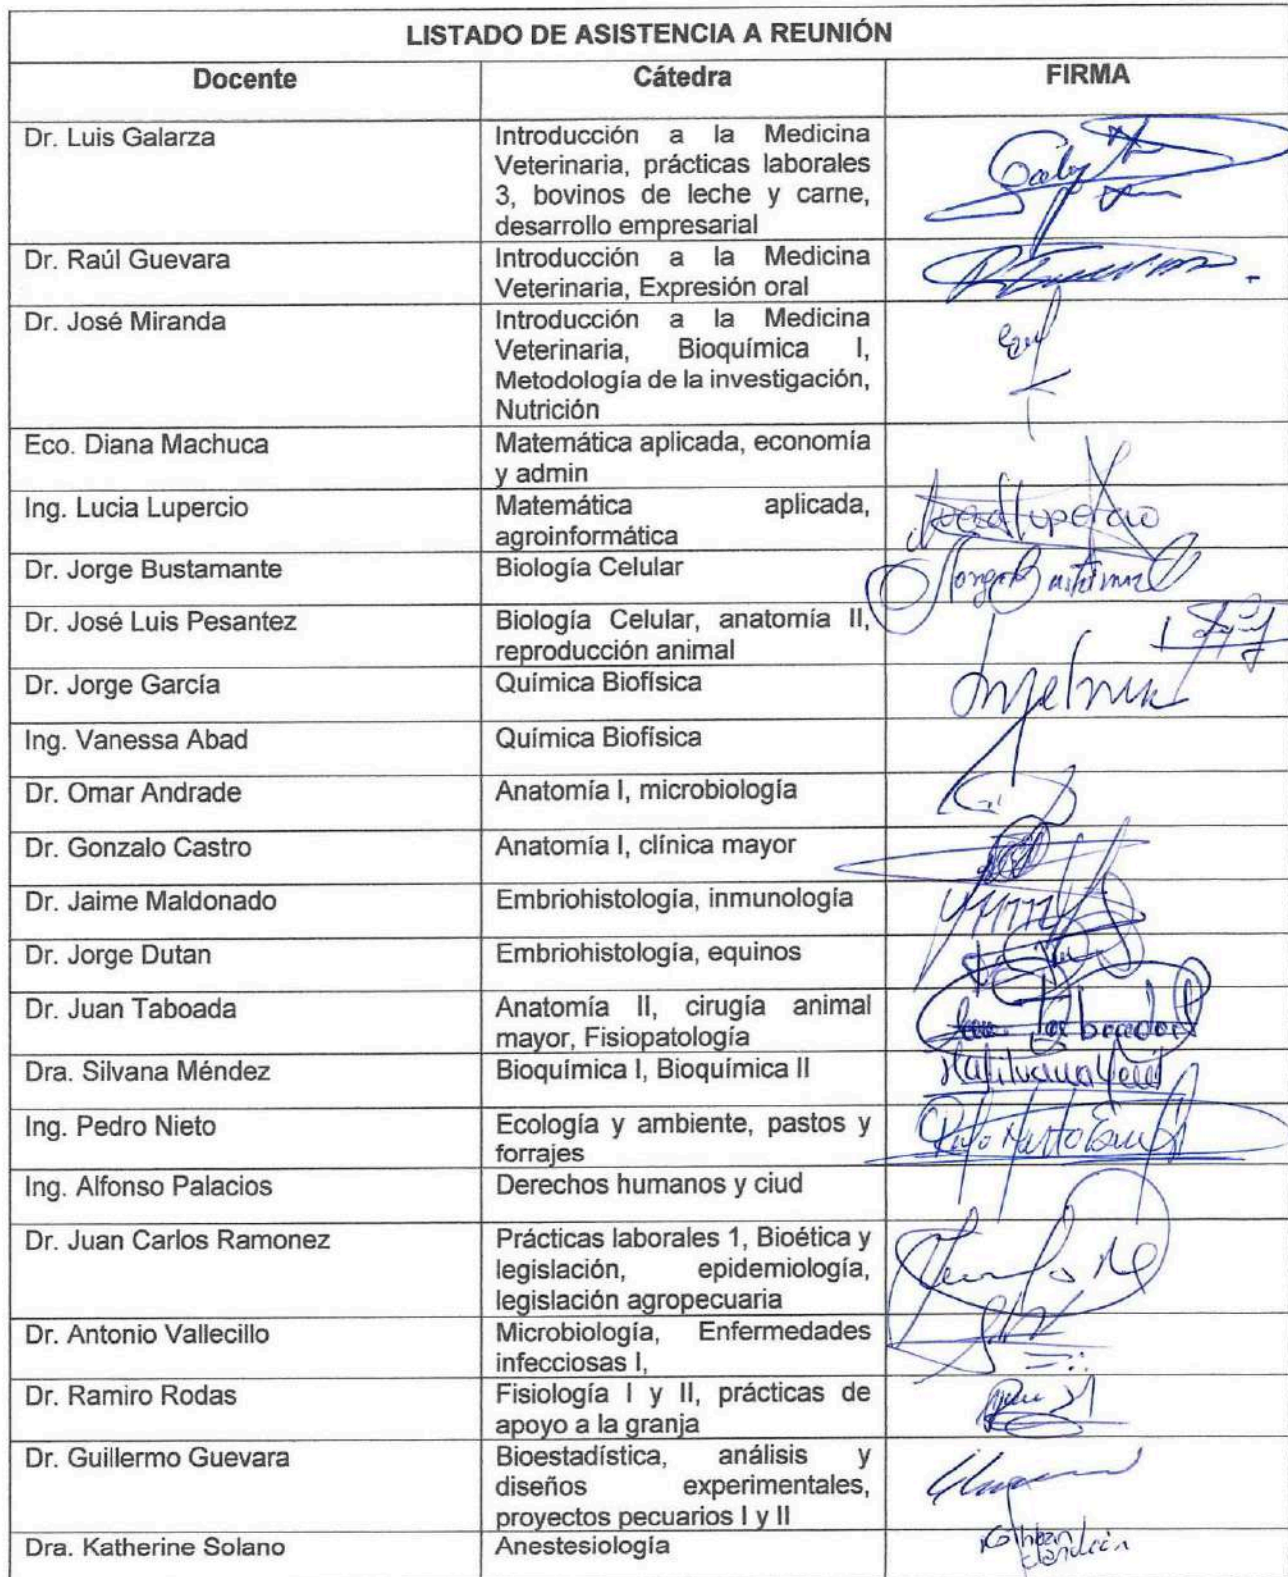 LISTADO DE ASISTENCIA A REUNIÓN
Docente Cátedra FIRMA
Dr. Luis Galarza
Introducción a la Medicina
Veterinaria, prácticas laborales
3, bovinos de leche y carne,
desarrollo empresarial
Dr. Raúl Guevara
Introducción a la Medicina
Veterinaria, Expresión oral
Dr. José Miranda
Introducción a la Medicina
Veterinaria, Bioquímica I,
Metodología de la investigación,
Nutrición
Eco. Diana Machuca
Matemática aplicada, economía
y admin
Ing. Lucia Lupercio
Matemática aplicada,
agroinformática
Dr. Jorge Bustamante
Biología Celular
Dr. José Luis Pesantez
Biología Celular, anatomía II,
reproducción animal
Dr. Jorge García
Química Biofísica
Ing. Vanessa Abad
Química Biofísica
Dr. Omar Andrade
Anatomía I, microbiología
Dr. Gonzalo Castro
Anatomía I, clínica mayor
Dr. Jaime Maldonado
Embriohistología, inmunología
Dr. Jorge Dutan
Embriohistología, equinos
Dr. Juan Taboada
Anatomía II, cirugía animal
mayor, Fisiopatología
Dra. Silvana Méndez
Bioquímica I, Bioquímica II
Ing. Pedro Nieto
Ecología y ambiente, pastos y
forrajes
Ing. Alfonso Palacios
Derechos humanos y ciud
Dr. Juan Carlos Ramonez
Prácticas laborales 1, Bioética y
legislación, epidemiología,
legislación agropecuaria
Dr. Antonio Vallecillo
Microbiología, Enfermedades
infecciosas I,
Dr. Ramiro Rodas
Fisiología I y II, prácticas de
apoyo a la granja
Dr. Guillermo Guevara
Bioestadística, análisis y
diseños experimentales,
proyectos pecuarios I y II
Dra. Katherine Solano
Anestesiología